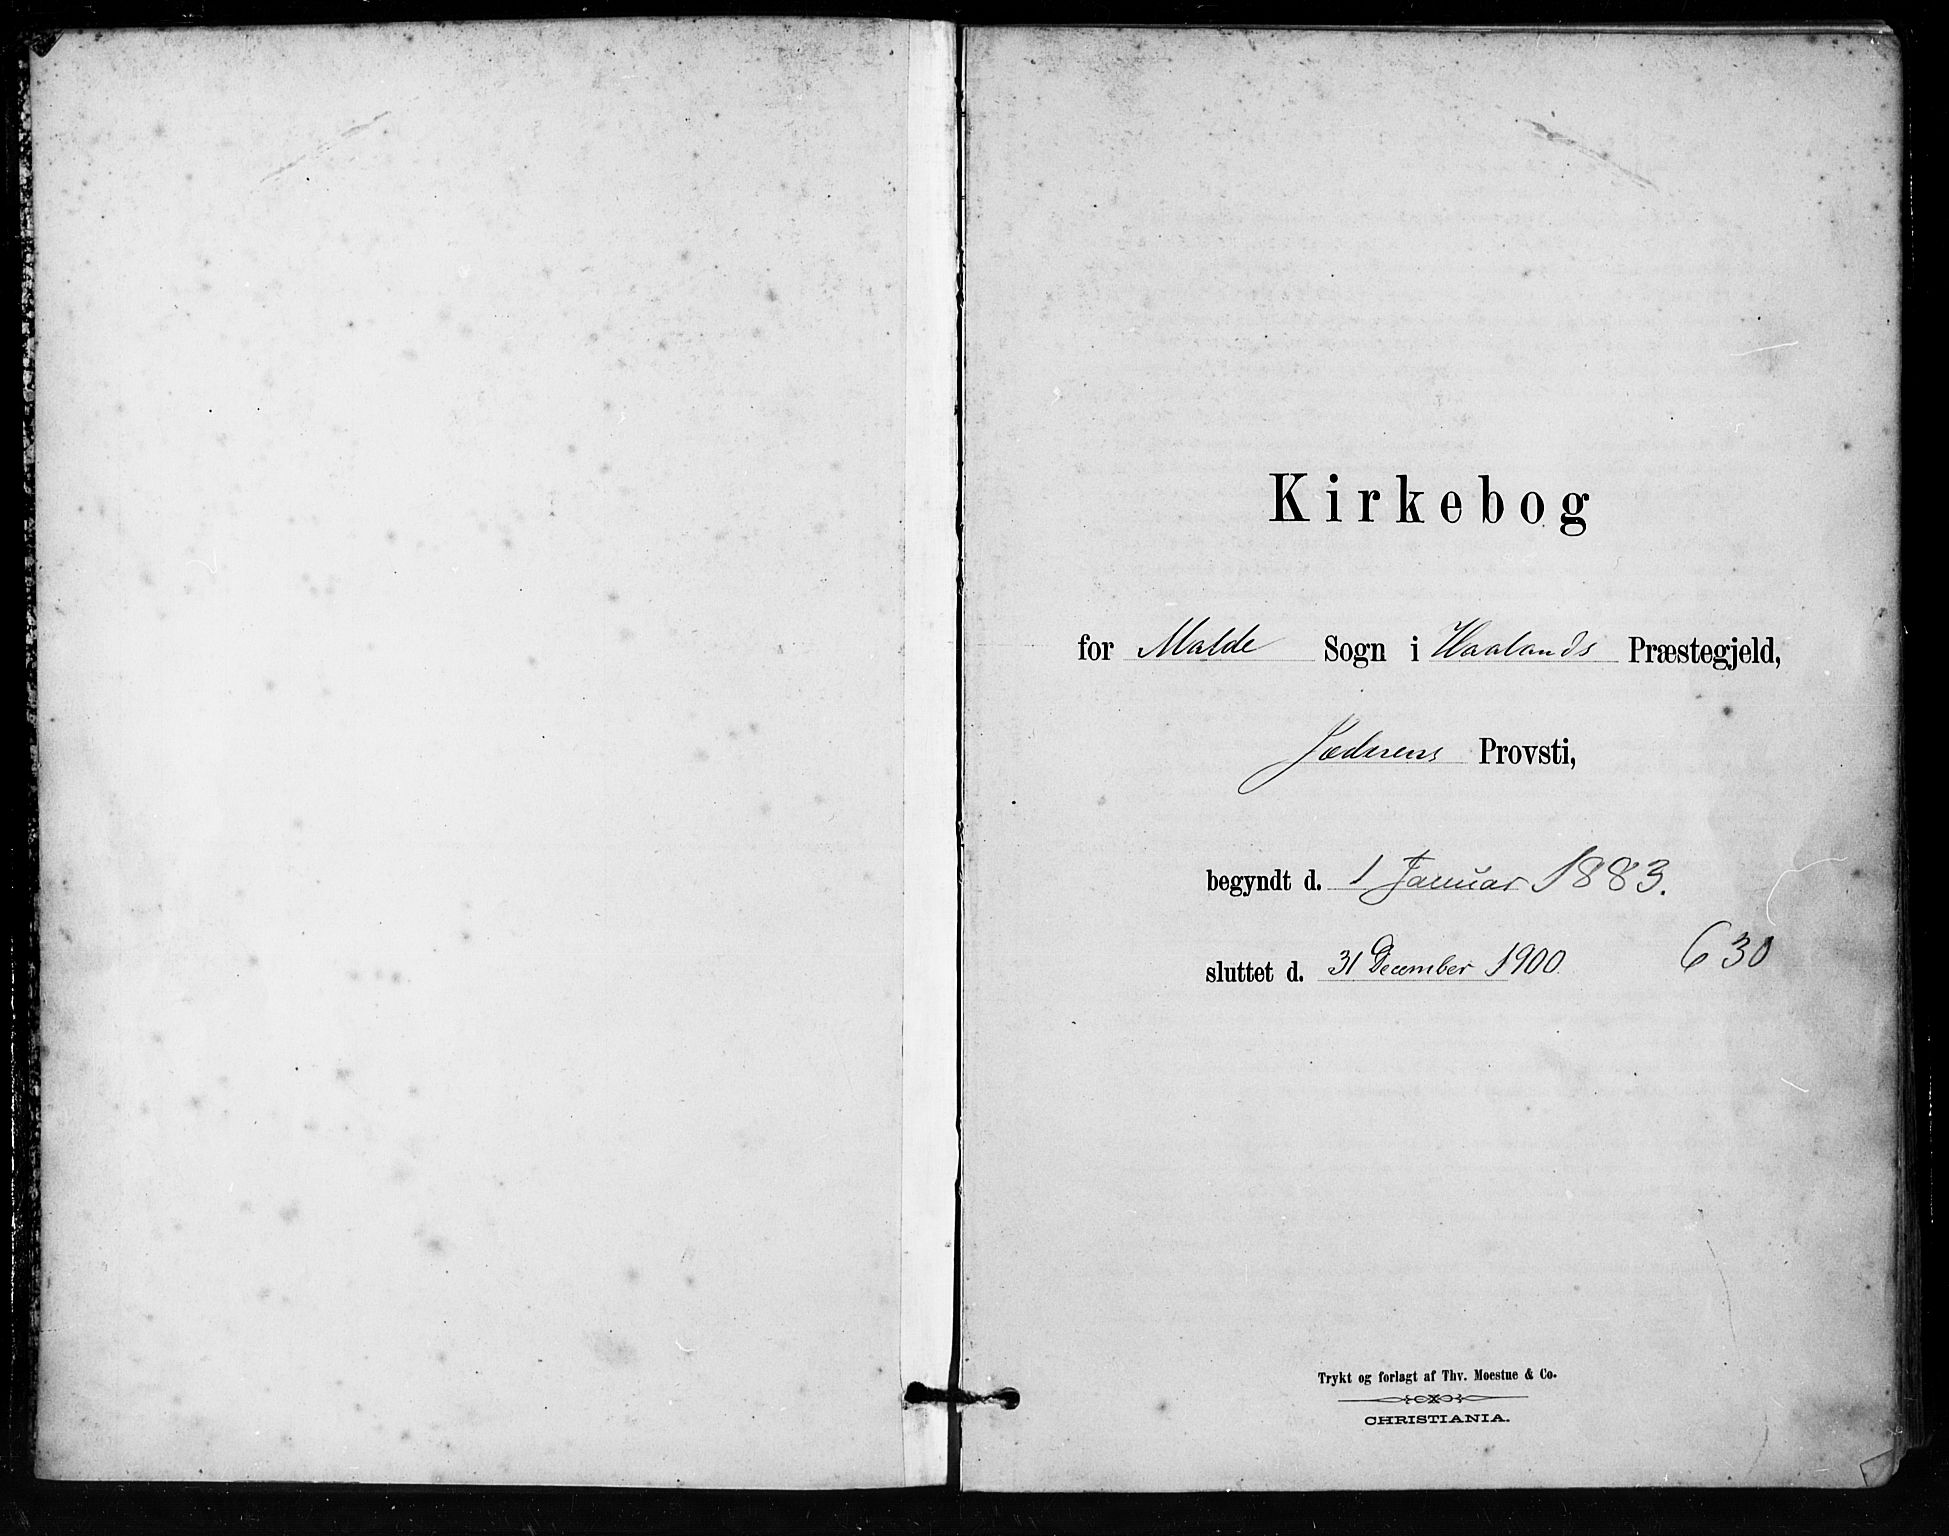 Kirkebog
for Malde Sogn i Haalands Præstegjeld,
Jæderens Provsti,
begyndt d. 1 Januar 1883.
sluttet d. 31 December 1900 630
Trykt og forlagt af Thv. Moestue & Co.
CHRISTIANIA.